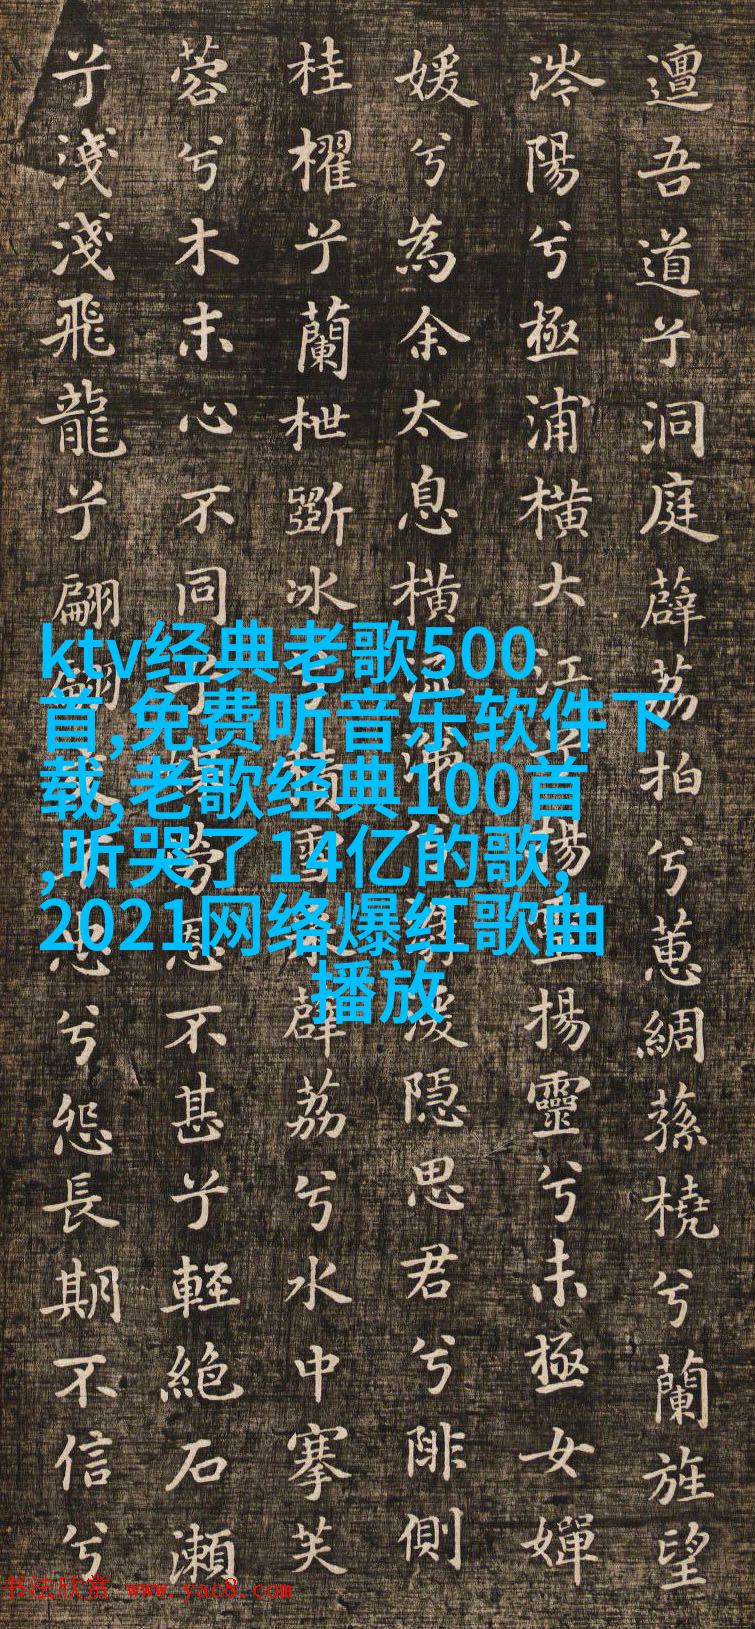 邅吾道兮洞庭薜荔拍兮蕙綢蓀橈兮蘭旌望
涔陽兮極浦橫大江兮揚靈揚靈兮未極女嬋
媛兮為余太息橫流涕兮潺湲隱思君兮陫側
桂櫂兮蘭枻斲冰兮積雪采薜荔兮水中搴芙
蓉兮木末心不同兮媒勞恩不甚兮輕絶石瀨
兮淺淺飛龍兮翩翩交不忠兮怨長期不信兮
ktv经典老歌500
首,免费听音乐软件下
载,老歌经典100首
,听哭了14亿的歌,
2021网络爆红歌曲
播放
书法欣赏 www.yac8.com